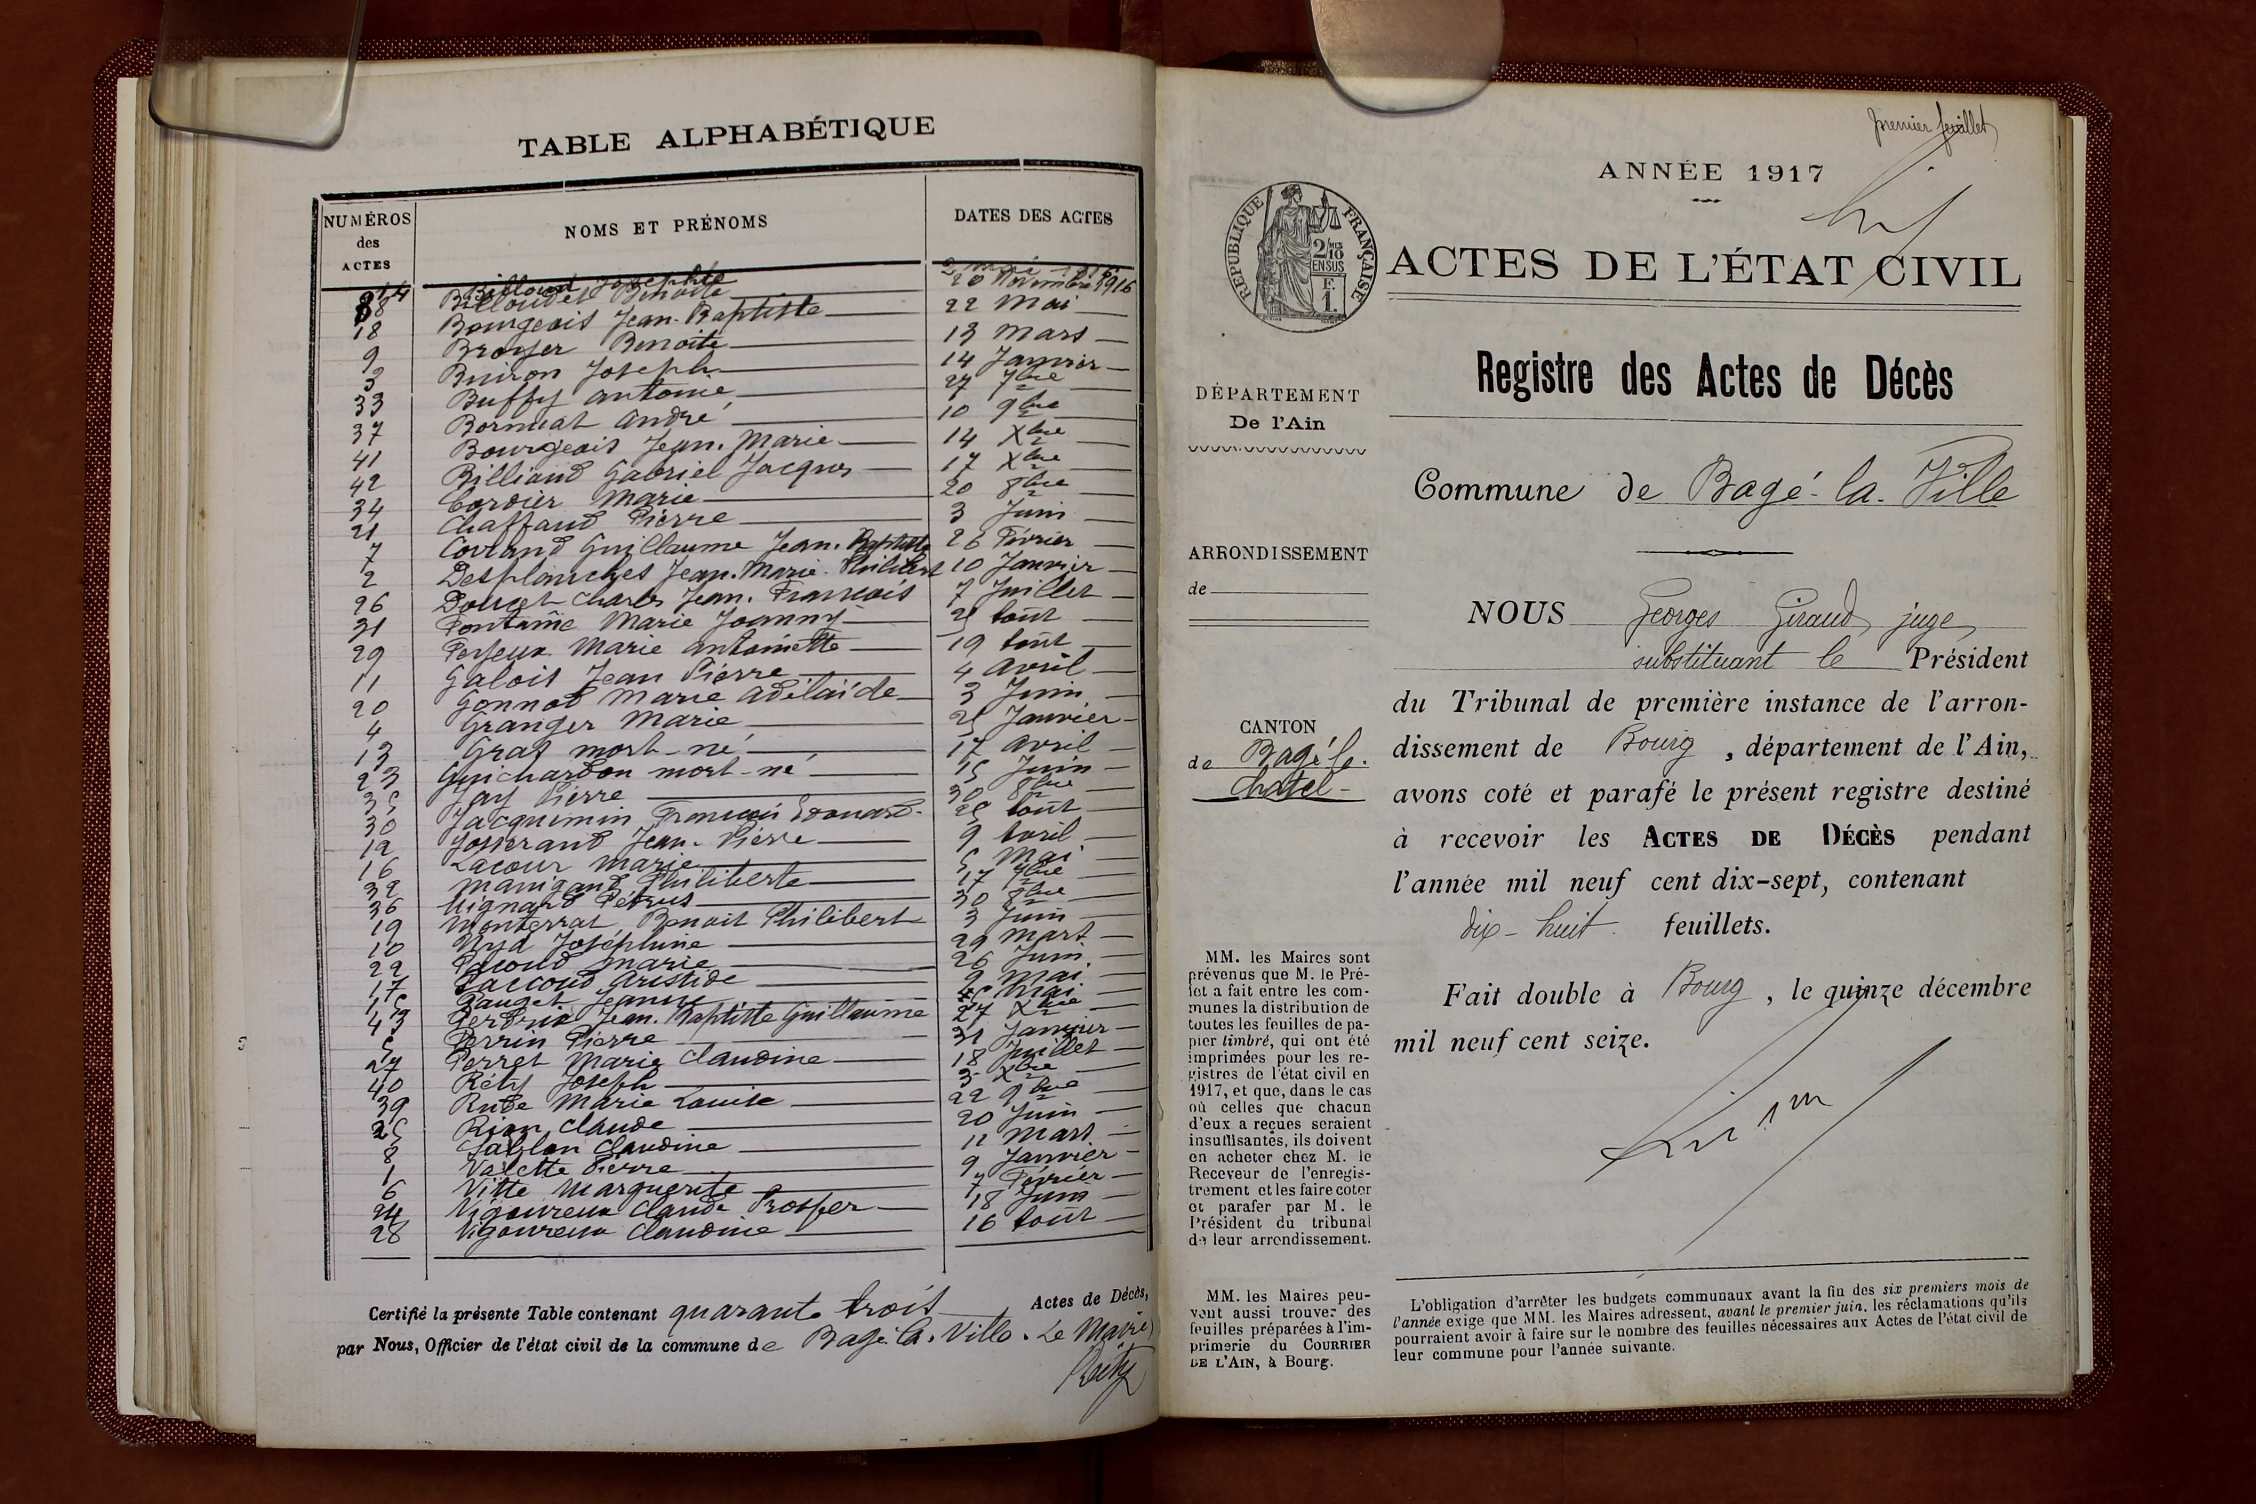 TABLE ALPHABÉTIQUE
NUMÉROS des ACTES
NOMS ET PRÉNOMS
DATES DES ACTES
14 Billoud Josephte 2 Mai
38 Billoudet Benoite 20 Novembre 1916
18 Bourgeois Jean-Baptiste 22 Mai
9 Broyer Benoite 13 Mars
3 Buiron Joseph 14 Janvier
33 Buffy Antoine 27 7bre
37 André 10 9bre
41 Bourgeois Jean-Marie 14 Xbre
42 Billiand Gabriel Jacques 17 Xbre
34 Cordier Marie 20 8bre
21 Chaffaud Pierre 3 Juin
7 Guillaume Jean-Baptiste 26 Février
2 Desplanches Jean-Marie-Philibert 10 Janvier
26 Doucet Charles Jean-François 7 Juillet
31 Fontaine Marie Joanny 21 Août
29 Feyeux Marie Antoinette 19 Août
11 Galois Jean Pierre 4 Avril
20 Gonnod Marie Adélaïde 3 Juin
4 Granger Marie 21 Janvier
13 Gras mort-né 17 Avril
23 Guichardon mort-né 15 Juin
35 Jay Pierre 30 8bre
30 Jacquemin François Edouard 20 Août
12 Josserand Jean-Pierre 9 Avril
16 Lacour Marie 5 Mai
32 Manigand Philiberte 17 7bre
36 Mignard Pétrus 30 8bre
19 Monterrat Benoit Philibert 3 Juin
10 Nyd Joséphine 29 Mars
22 Pacoud Marie 26 Juin
17 Paccoud Aristide 9 Mai
15 Pauget Jeanne Mai
43 Perdrix Jean-Baptiste Guillaume 27 Xbre
5 Perrin Pierre 31 Janvier
27 Perret Marie Claudine 18 Juillet
40 Réty Joseph 3 Xbre
39 Rude Marie Louise 22 9bre
25 Rion Claude 20 Juin
8 Sablon Claudine 12 Mars
1 Valette Pierre 9 Janvier
6 Vitte Marguerite 7 Février
24 Vigoureux Claude Prosper 18 Juin
28 Vigoureux Claudine 16 Août
Certifié la présente Table contenant quarante trois Actes de Décès,
par Nous, Officier de l'état civil de la commune de Bagé-la-Ville. Le Maire
Réty
premier feuillet
ANNÉE 1917
RÉPUBLIQUE FRANÇAISE
2/10 EN SUS
F. 1.
ACTES DE L'ÉTAT CIVIL
Registre des Actes de Décès
DÉPARTEMENT
De l'Ain
Commune de Bagé-la-Ville
ARRONDISSEMENT
de
NOUS Georges Giraud, juge,
substituant le Président
du Tribunal de première instance de l'arron-
dissement de Bourg, département de l'Ain,
avons coté et parafé le présent registre destiné
à recevoir les ACTES DE DÉCÈS pendant
l'année mil neuf cent dix-sept, contenant
dix-huit feuillets.
Fait double à Bourg, le quinze décembre
mil neuf cent seize.
CANTON
de Bagé-le-
Chatel-
MM. les Maires sont
prévenus que M. le Pré-
fet a fait entre les com-
munes la distribution de
toutes les feuilles de pa-
pier timbré, qui ont été
imprimées pour les re-
gistres de l'état civil en
1917, et que, dans le cas
où celles que chacun
d'eux a reçues seraient
insuffisantes, ils doivent
en acheter chez M. le
Receveur de l'enregis-
trement et les faire coter
et parafer par M. le
Président du tribunal
de leur arrondissement.
MM. les Maires peu-
vent aussi trouver des
feuilles préparées à l'im-
primerie du COURRIER
DE L'AIN, à Bourg.
L'obligation d'arrêter les budgets communaux avant la fin des six premiers mois de
l'année exige que MM. les Maires adressent, avant le premier juin, les réclamations qu'ils
pourraient avoir à faire sur le nombre des feuilles nécessaires aux Actes de l'état civil de
leur commune pour l'année suivante.